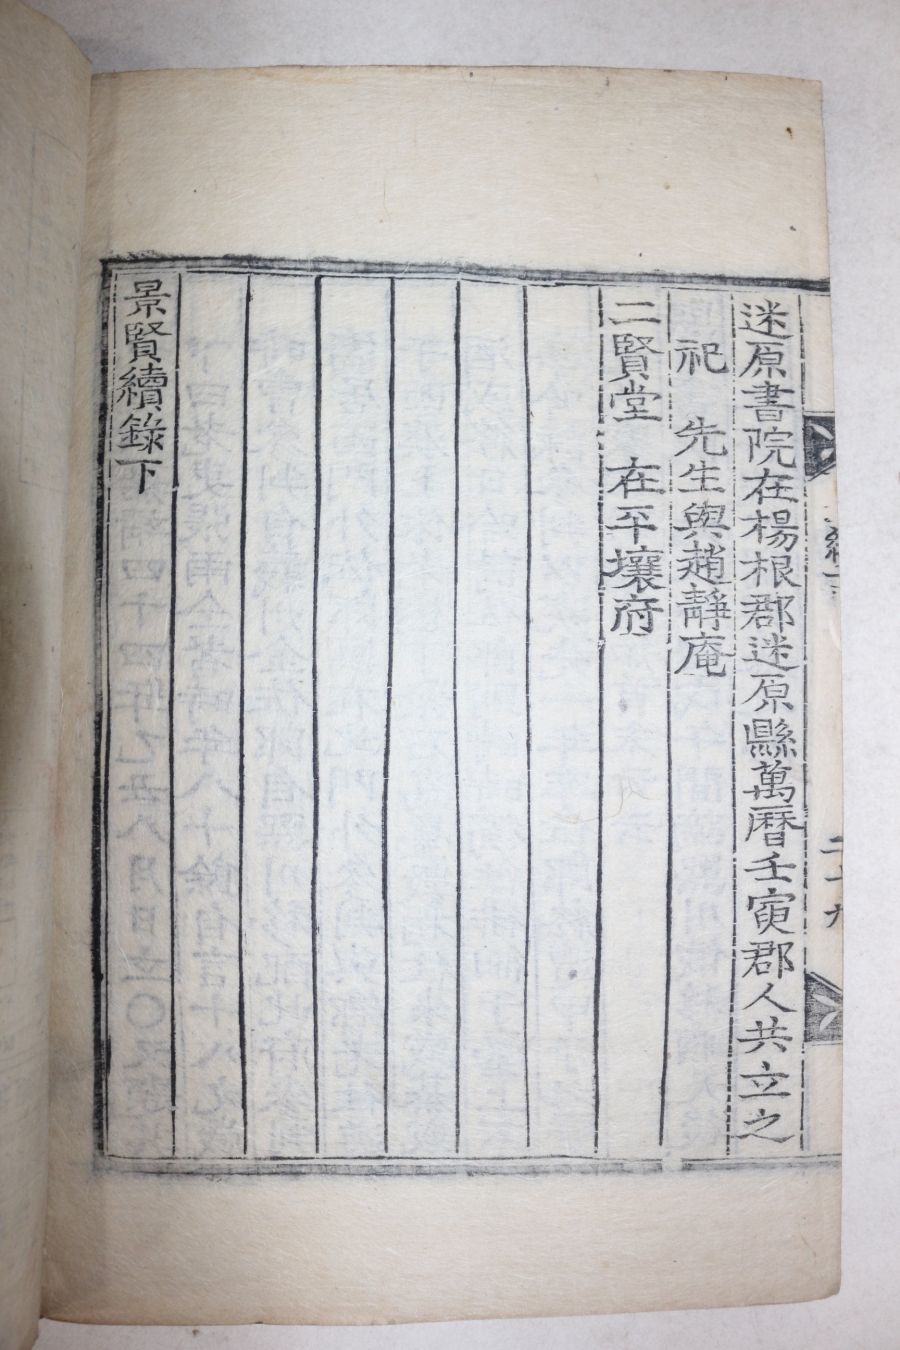 迷原書院在楊根郡迷原縣萬曆壬寅郡人共立之
祀　先生與趙靜庵
二賢堂　在平壤府
景賢續錄下
二十九